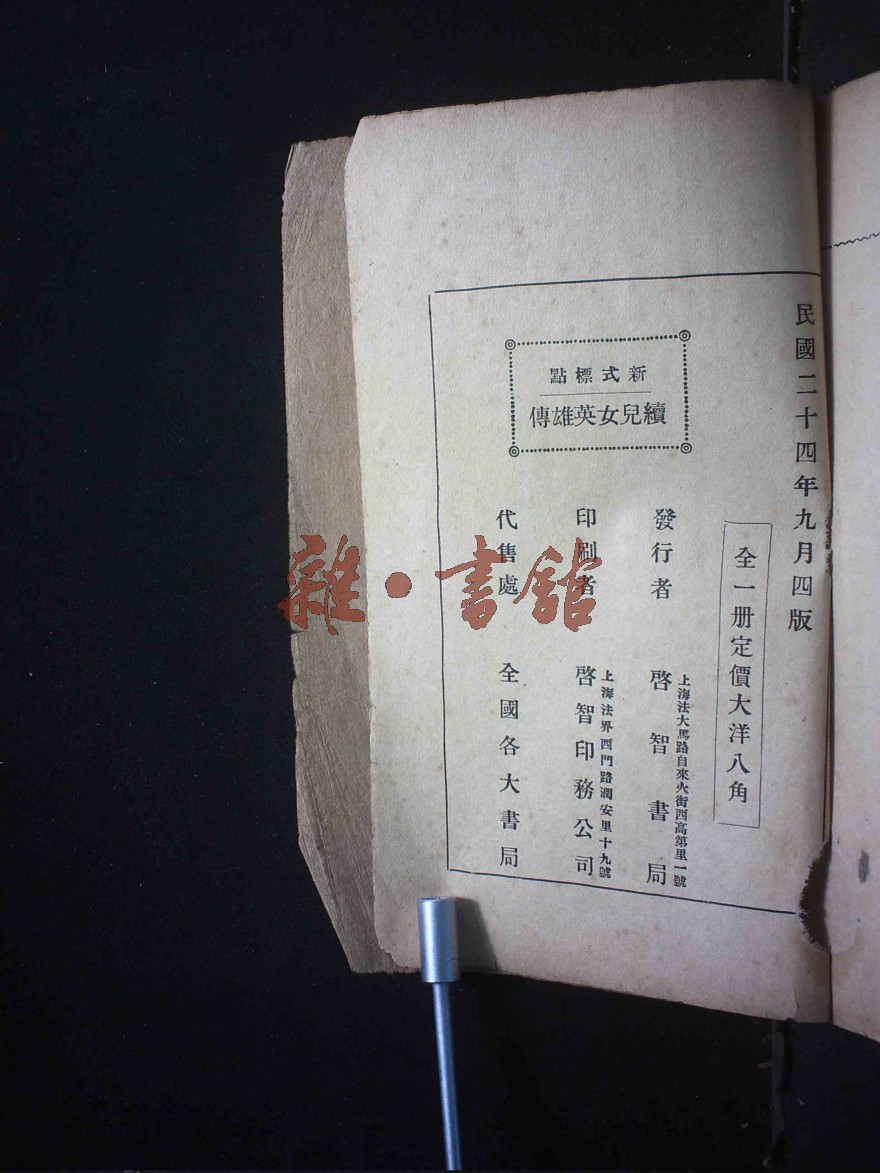 民國二十四年九月四版
全一册定價大洋八角
新式標點
續兒女英雄傳
發行者
上海法大馬路自來火街西高第里一號
啓智書局
印刷者
上海法界西門路潤安里十九號
啓智印務公司
代售處
全國各大書局
雜·書舘